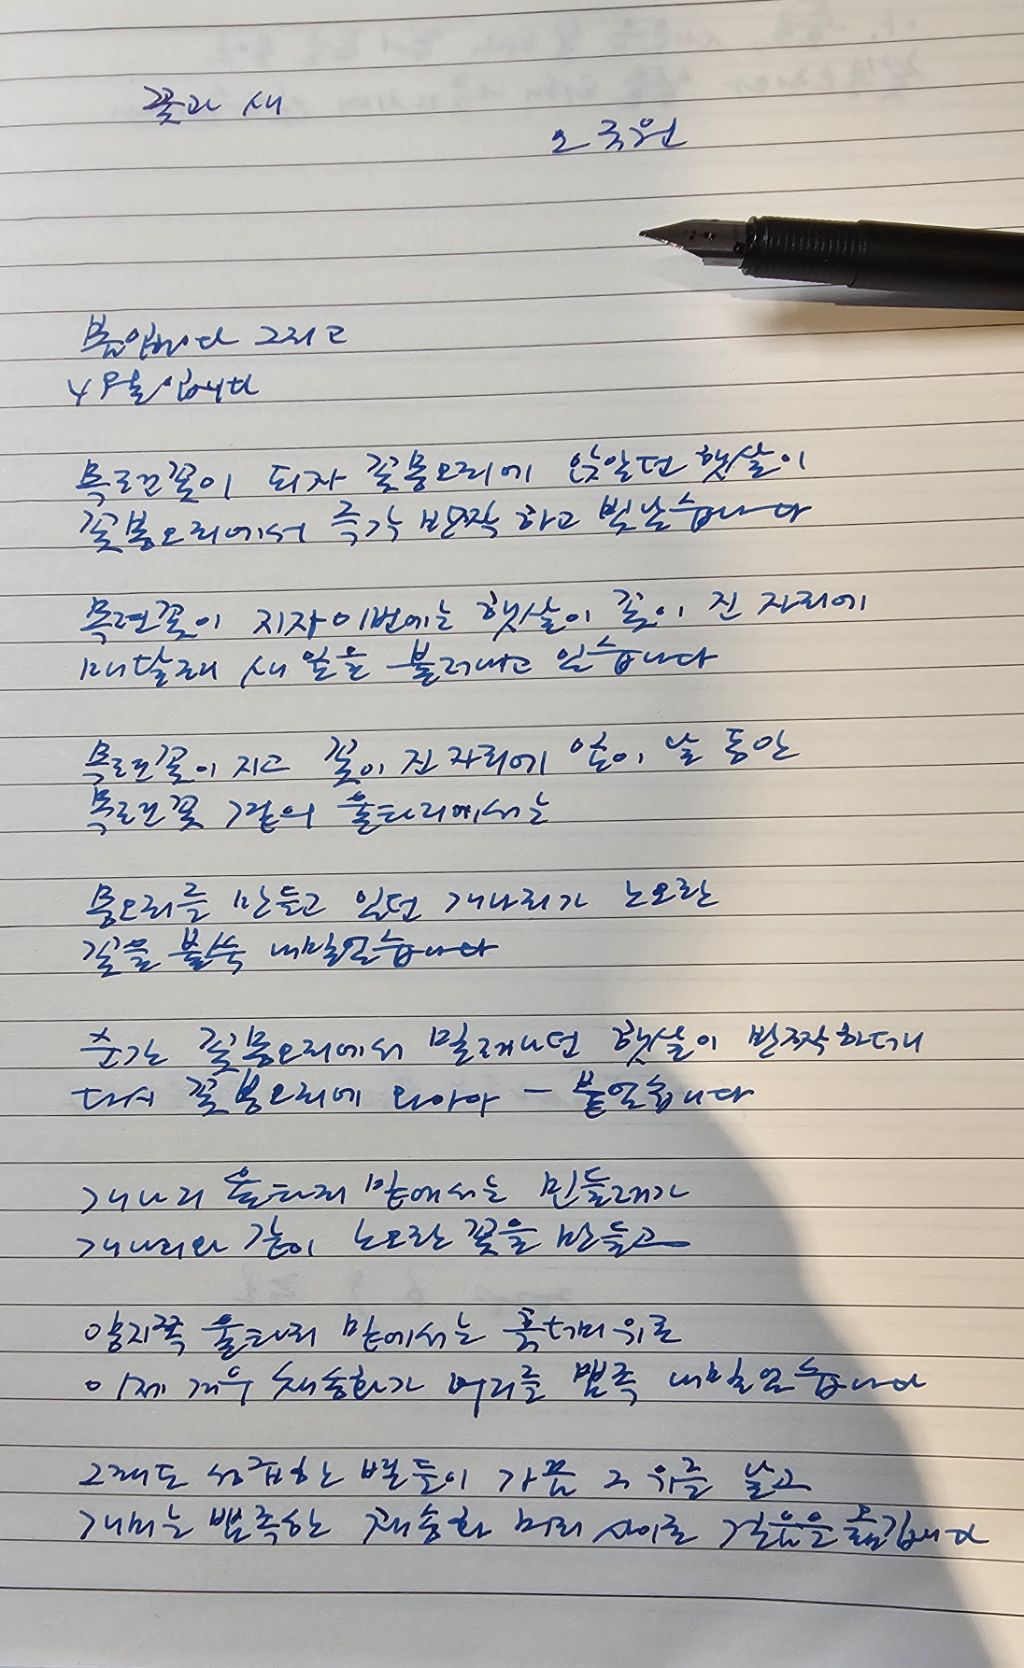 꽃과 새
오규원
봄입니다 그리고
4월입니다
목련꽃이 되자 꽃봉오리에 앉았던 햇살이
꽃봉오리에서 즉각 반짝 하고 빛났습니다
목련꽃이 지자 이번에는 햇살이 꽃이 진 자리에
매달려 새 잎을 불러내고 있습니다
목련꽃이 지고 꽃이 진 자리에 잎이 날 동안
목련꽃 곁의 울타리에서는
몽오리를 만들고 있던 개나리가 노오란
꽃을 불쑥 내밀었습니다
순간 꽃봉오리에서 밀려나던 햇살이 반짝하더니
다시 꽃봉오리에 와아아 - 붙었습니다
개나리 울타리 밑에서는 민들레가
개나리와 같이 노오란 꽃을 만들고
양지쪽 울타리 밑에서는 흙더미 위로
이제 겨우 채송화가 머리를 뾰족 내밀었습니다
그래도 성급한 벌들이 가끔 그 위를 날고
개미는 뾰족한 채송화 머리 사이로 걸음을 옮깁니다